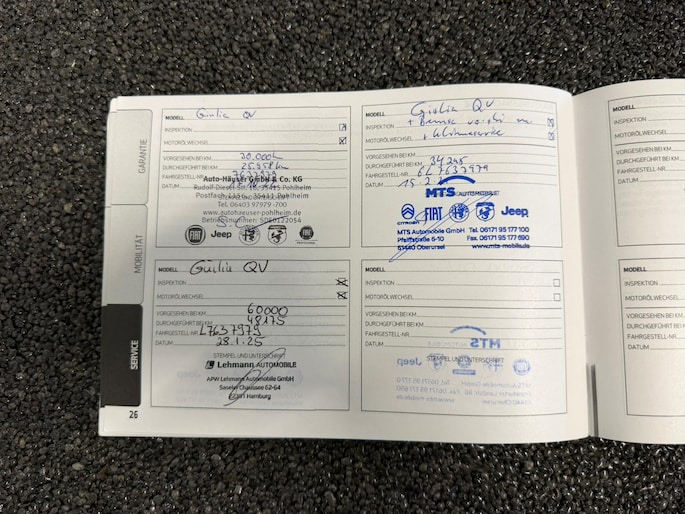 GARANTIE
MOBILITÄT
SERVICE
26
MODELL Giulia QV
INSPEKTION
MOTORÖLWECHSEL
VORGESEHEN BEI KM 30.000
DURCHGEFÜHRT BEI KM 25.958 km
FAHRGESTELL-NR. 7637979
DATUM
Auto-Häuser GmbH & Co. KG
Rudolf-Diesel-Str. 35415 Pohlheim
Postfach 35411 Pohlheim
Tel. 06403 97979-700
www.autohaeuser-pohlheim.de
Betriebsnummer: SDE0122054
Jeep
MODELL Giulia QV
INSPEKTION +
MOTORÖLWECHSEL + Klimaservice
VORGESEHEN BEI KM
DURCHGEFÜHRT BEI KM 34245
FAHRGESTELL-NR. GL7637979
DATUM 15.2.
MTS AUTOMOBILE
CITROËN FIAT Jeep
MTS Automobile GmbH Tel. 06171 95 177 100
Pfeiffstraße 6-10 Fax. 06171 95 177 690
61440 Oberursel www.mts-mobile.de
MODELL Giulia QV
INSPEKTION
MOTORÖLWECHSEL
VORGESEHEN BEI KM 60000
DURCHGEFÜHRT BEI KM 48175
FAHRGESTELL-NR. L7637979
DATUM 28.1.25
STEMPEL UND UNTERSCHRIFT
Lehmann AUTOMOBILE
APW Lehmann Automobile GmbH
Saseler Chaussee 62-64
22391 Hamburg
MODELL
INSPEKTION
MOTORÖLWECHSEL
VORGESEHEN BEI KM
DURCHGEFÜHRT BEI KM
FAHRGESTELL-NR.
DATUM
STEMPEL UND UNTERSCHRIFT
MODELL
INSPEKTION
MOTORÖLWECHSEL
VORGESEHEN BEI KM
DURCHGEFÜHRT BEI KM
FAHRGESTELL-NR.
DATUM
MODELL
INSPEKTION
MOTORÖLWECHSEL
VORGESEHEN BEI KM
DURCHGEFÜHRT BEI KM
FAHRGESTELL-NR.
DATUM